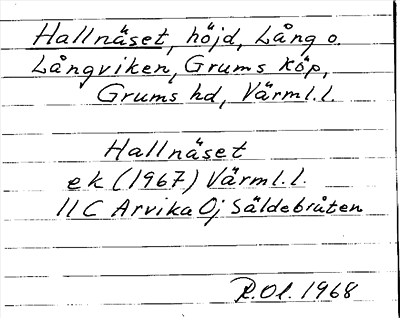 Hallnäset, höjd, Lång o.
Långviken, Grums köp,
Grums hd, Värml.l.
Hallnäset
ek (1967) Värml.l.
11C Arvika Öj Säldebråten
R.Ol. 1968